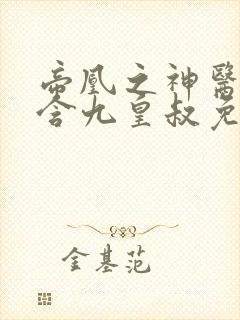 帝凰之神醫
含九皇叔免
金基范